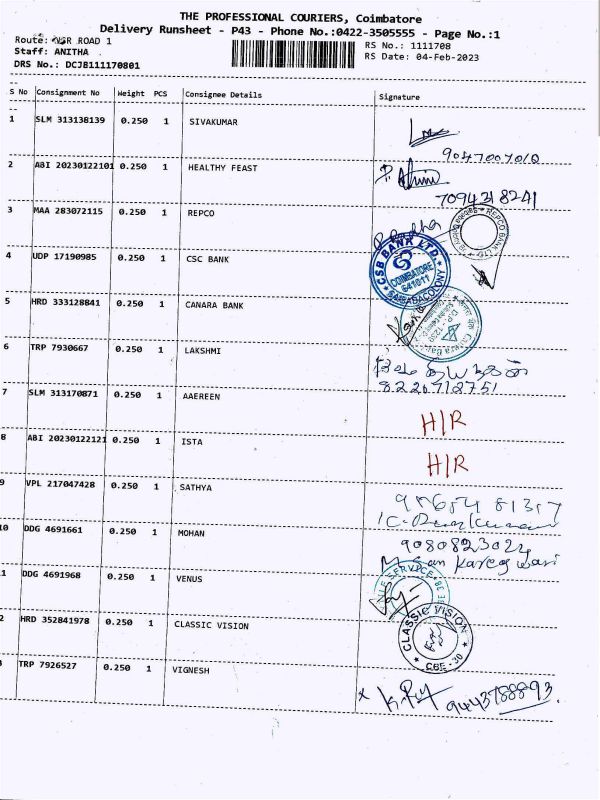 THE PROFESSIONAL COURIERS, Coimbatore
Delivery Runsheet - P43 - Phone No.:0422-3505555 - Page No.:1
Route: NSR ROAD 1
Staff: ANITHA
DRS No.: DCJB111170801
RS No.: 1111708
RS Date: 04-Feb-2023
S No Consignment No Weight PCS Consignee Details Signature
1 SLM 313138139 0.250 1 SIVAKUMAR
9047007010
2 ABI 20230122101 0.250 1 HEALTHY FEAST
7094318241
3 MAA 283072115 0.250 1 REPCO
REPCO BANK LTD
4 UDP 17190985 0.250 1 CSC BANK
CSB BANK LTD.
COIMBATORE
641011
SAIBABACOLONY
5 HRD 333128841 0.250 1 CANARA BANK
D.P. - 1250
6 TRP 7930667 0.250 1 LAKSHMI
8220712751
7 SLM 313170871 0.250 1 AAEREEN
H/R
8 ABI 20230122121 0.250 1 ISTA
H/R
9 VPL 217047428 0.250 1 SATHYA
10 DDG 4691661 0.250 1 MOHAN
9080823024
1 DDG 4691968 0.250 1 VENUS
SERVICE
2 HRD 352841978 0.250 1 CLASSIC VISION
CLASSIC VISION
CBE - 30
TRP 7926527 0.250 1 VIGNESH
x 9443788893